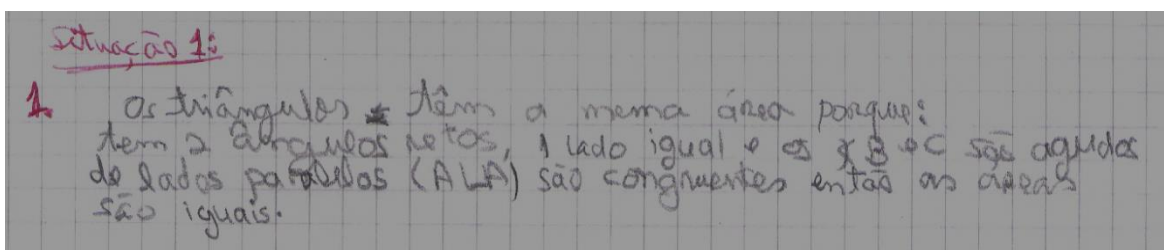 Situação 1:
1. Os triângulos têm a mema área porque:
tem 2 ângulos retos, 1 lado igual e os ∢ B e C são agudos
de lados paralelos (ALA) são congruentes então as áreas
são iguais.